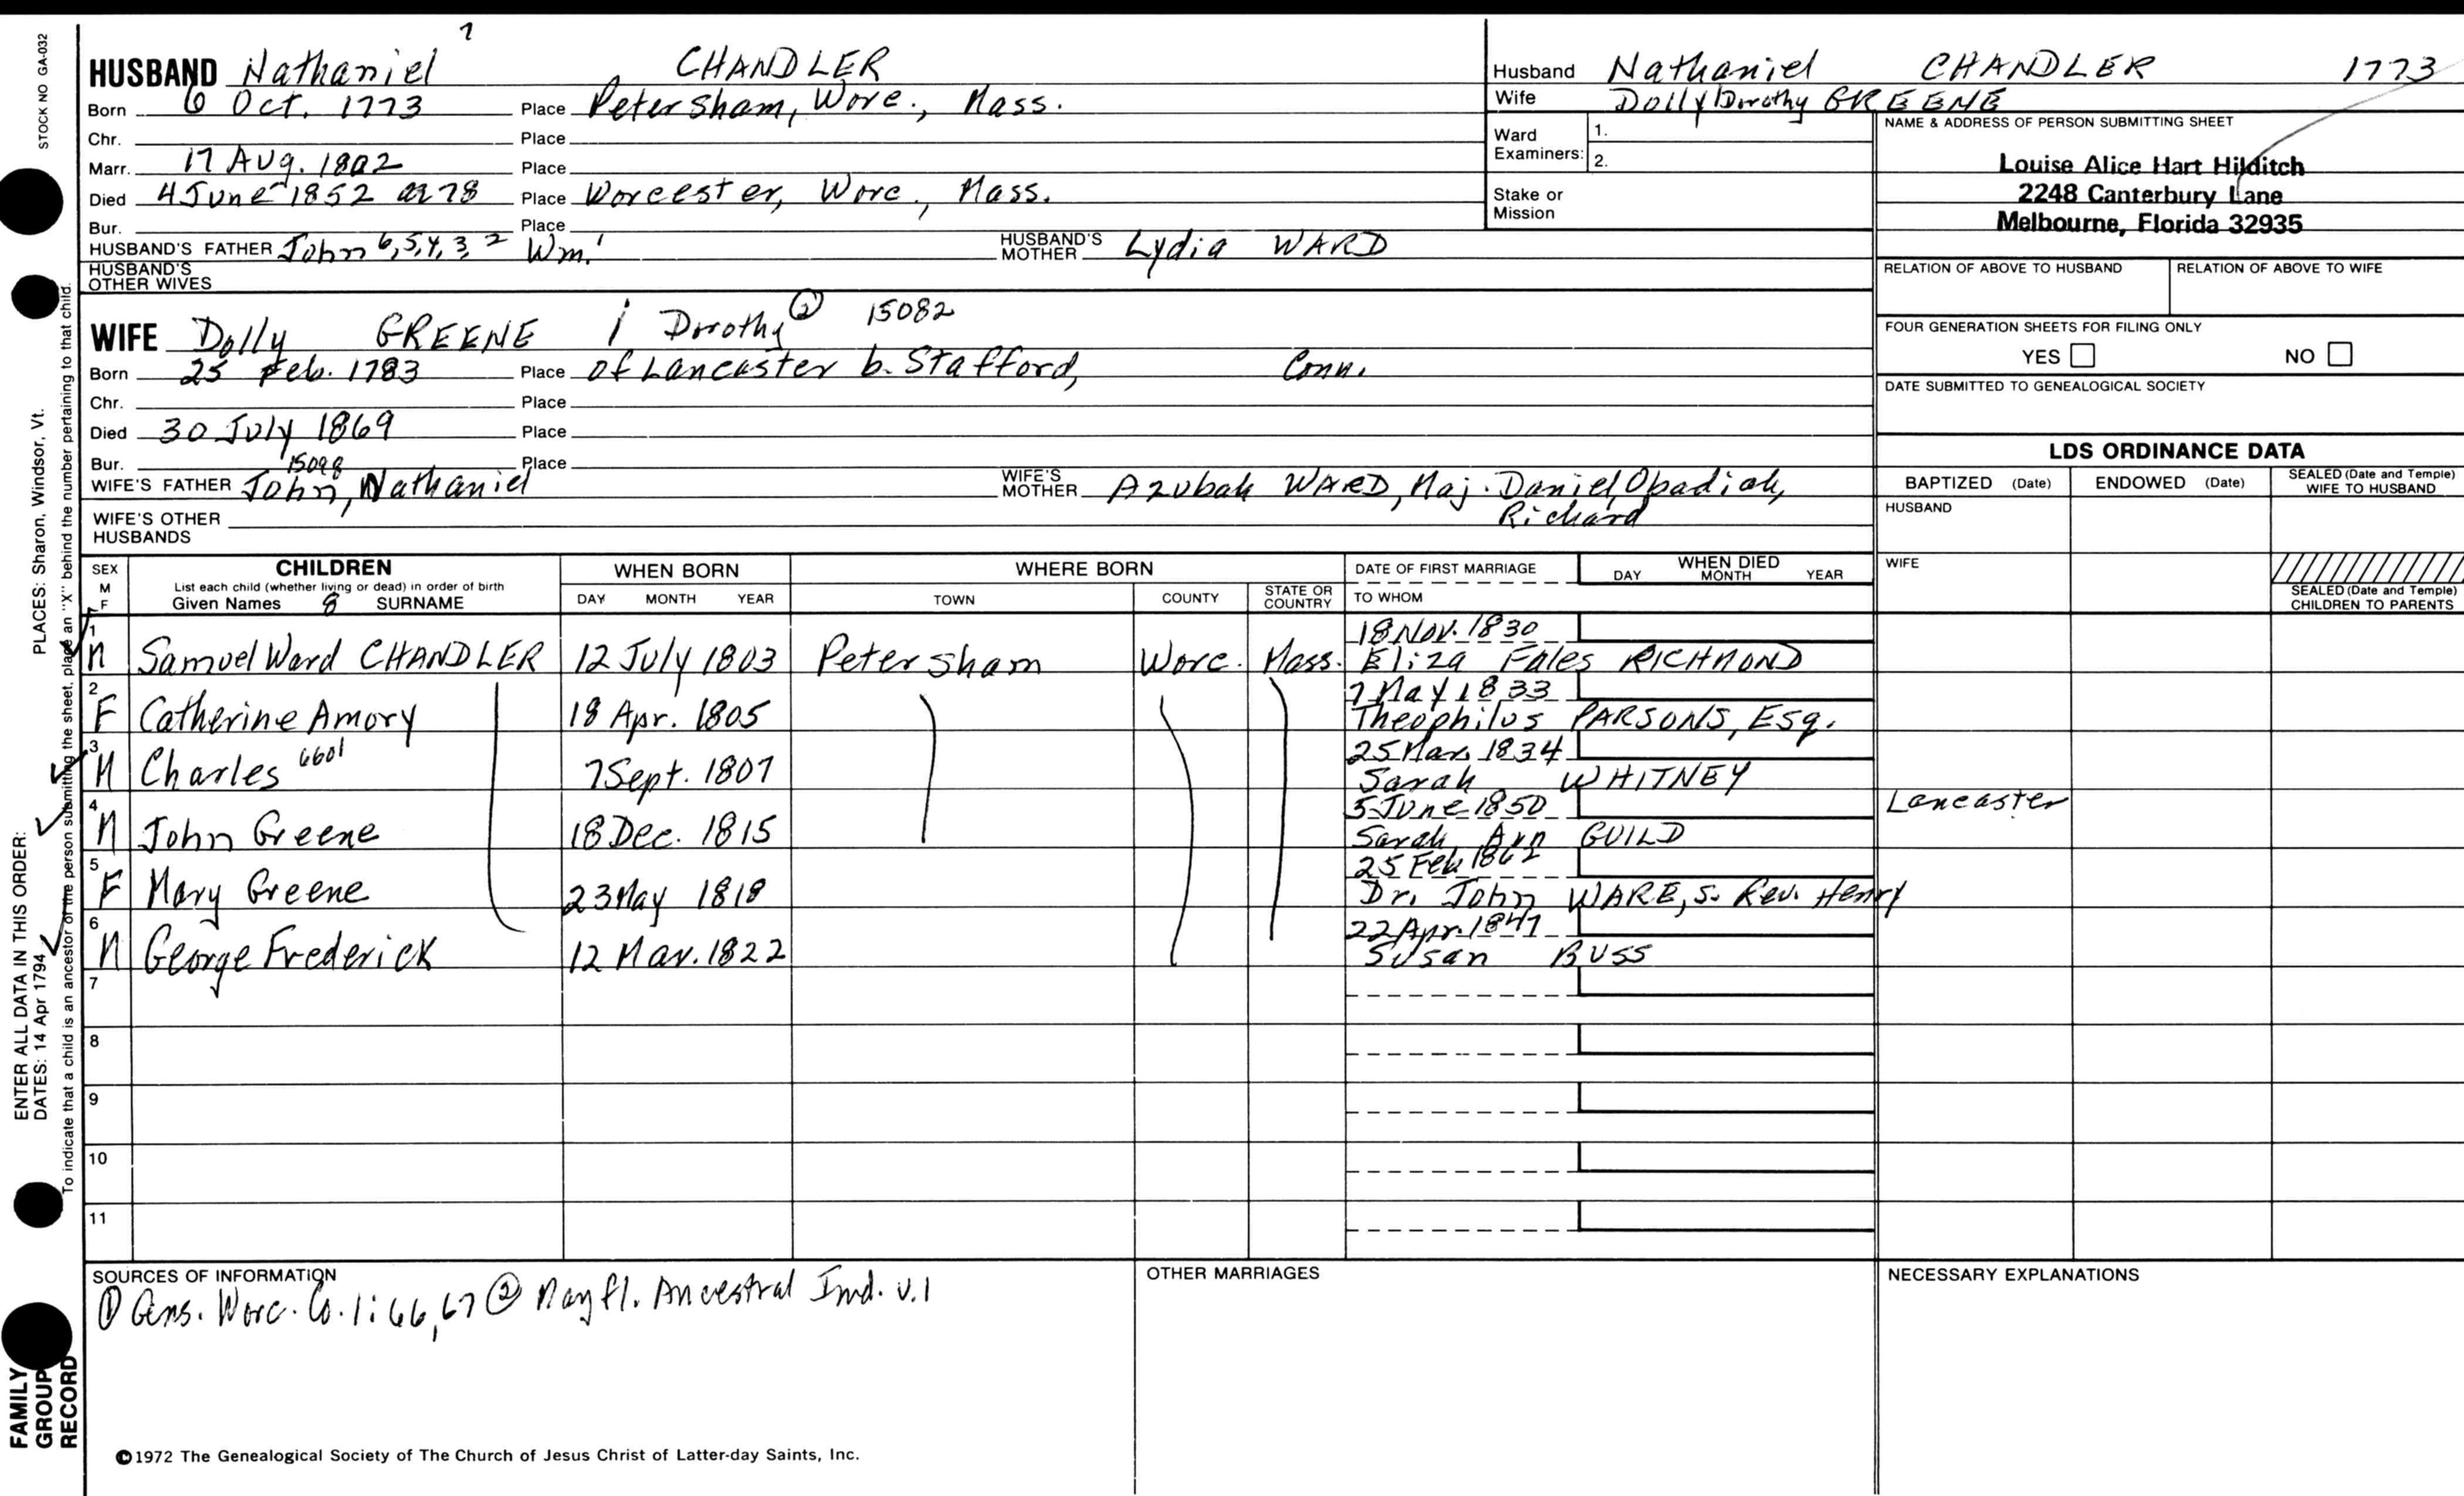 STOCK NO GA-032
7
HUSBAND Nathaniel CHANDLER
Born 6 Oct. 1773 Place Petersham, Worc., Mass.
Chr. Place
Marr. 17 Aug. 1802 Place
Died 4 June 1852 ae 78 Place Worcester, Worc., Mass.
Bur. Place
HUSBAND'S FATHER John 6,5,4,3 2 Wm.1 HUSBAND'S MOTHER Lydia WARD
HUSBAND'S OTHER WIVES
WIFE Dolly GREENE i Dorothy ② 15082
Born 25 Feb. 1783 Place of Lancaster b. Stafford, Conn.
Chr. Place
Died 30 July 1869 Place
Bur. Place
15098
WIFE'S FATHER John, Nathaniel WIFE'S MOTHER Azubah WARD, Maj. Daniel, Obadiah, Richard
WIFE'S OTHER HUSBANDS
Husband Nathaniel CHANDLER 1773
Wife Dolly/Dorothy GREENE
Ward Examiners: 1.
2.
Stake or Mission
NAME & ADDRESS OF PERSON SUBMITTING SHEET
Louise Alice Hart Hilditch
2248 Canterbury Lane
Melbourne, Florida 32935
RELATION OF ABOVE TO HUSBAND RELATION OF ABOVE TO WIFE
FOUR GENERATION SHEETS FOR FILING ONLY
YES NO
DATE SUBMITTED TO GENEALOGICAL SOCIETY
LDS ORDINANCE DATA
BAPTIZED (Date) ENDOWED (Date) SEALED (Date and Temple) WIFE TO HUSBAND
HUSBAND
WIFE
SEALED (Date and Temple) CHILDREN TO PARENTS
SEX M F CHILDREN WHEN BORN WHERE BORN DATE OF FIRST MARRIAGE WHEN DIED
List each child (whether living or dead) in order of birth
Given Names 8 SURNAME DAY MONTH YEAR TOWN COUNTY STATE OR COUNTRY TO WHOM DAY MONTH YEAR
1 M Samuel Ward CHANDLER 12 July 1803 Petersham Worc. Mass. 18 Nov. 1830
Eliza Fales RICHMOND
2 F Catherine Amory 18 Apr. 1805 7 May 1833
Theophilus PARSONS, Esq.
3 M Charles 6601 7 Sept. 1807 25 Mar. 1834
Sarah WHITNEY
4 M John Greene 18 Dec. 1815 5 June 1850 Lancaster
Sarah Ann GUILD
5 F Mary Greene 23 May 1818 25 Feb 1862
Dr. John WARE, s. Rev. Henry
6 M George Frederick 12 Mar. 1822 22 Apr. 1847
Susan BUSS
7
8
9
10
11
SOURCES OF INFORMATION
① Gens. Worc. Co. 1: 66, 67 ② Mayfl. Ancestral Ind. v.1
OTHER MARRIAGES
NECESSARY EXPLANATIONS
©1972 The Genealogical Society of The Church of Jesus Christ of Latter-day Saints, Inc.
ENTER ALL DATA IN THIS ORDER: PLACES: Sharon, Windsor, Vt.
DATES: 14 Apr 1794
To indicate that a child is an ancestor of the person submitting the sheet, place an "X" behind the number pertaining to that child.
FAMILY
GROUP
RECORD